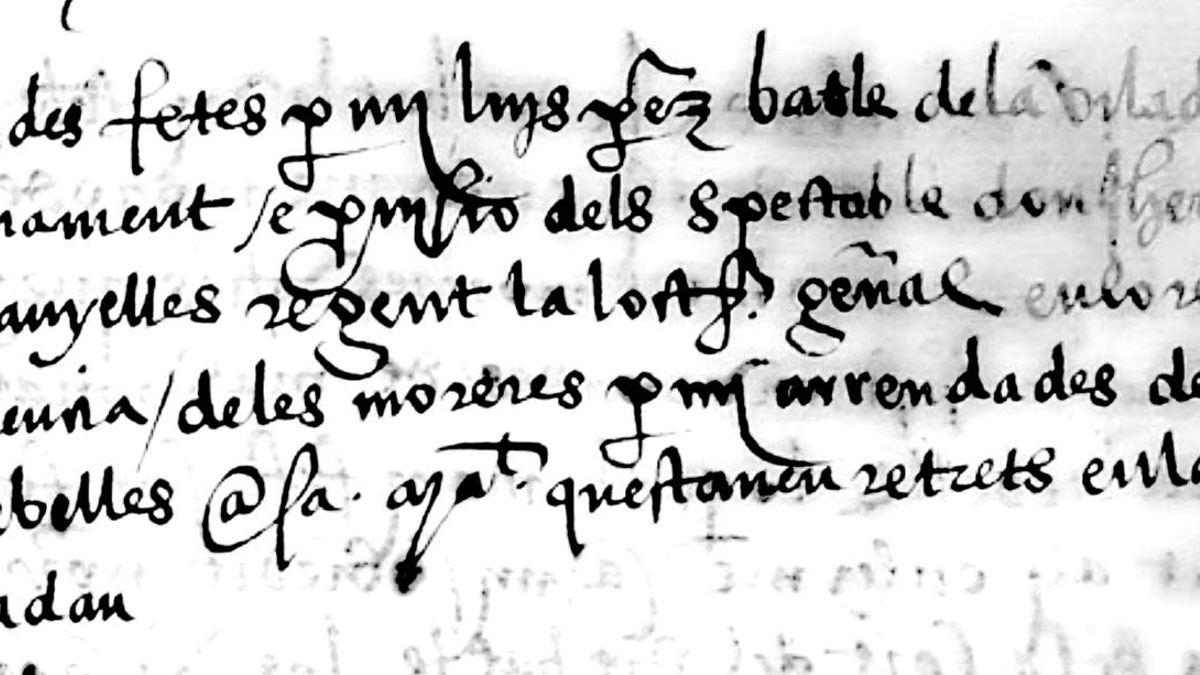 des fetes p mi luys perez batle dela vila d
nament / e pmissio dels spectable don
anyelles regent la loct general enlo re
/ deles moreres p mi arrendades de
belles @ sa mat questaven retrets enla
dau